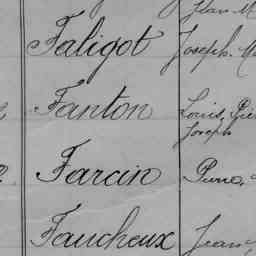 Jean M
Faligot Joseph. M
Fanton Louis, Pie
Joseph
Farcin Pierre,
Faucheux Jean,